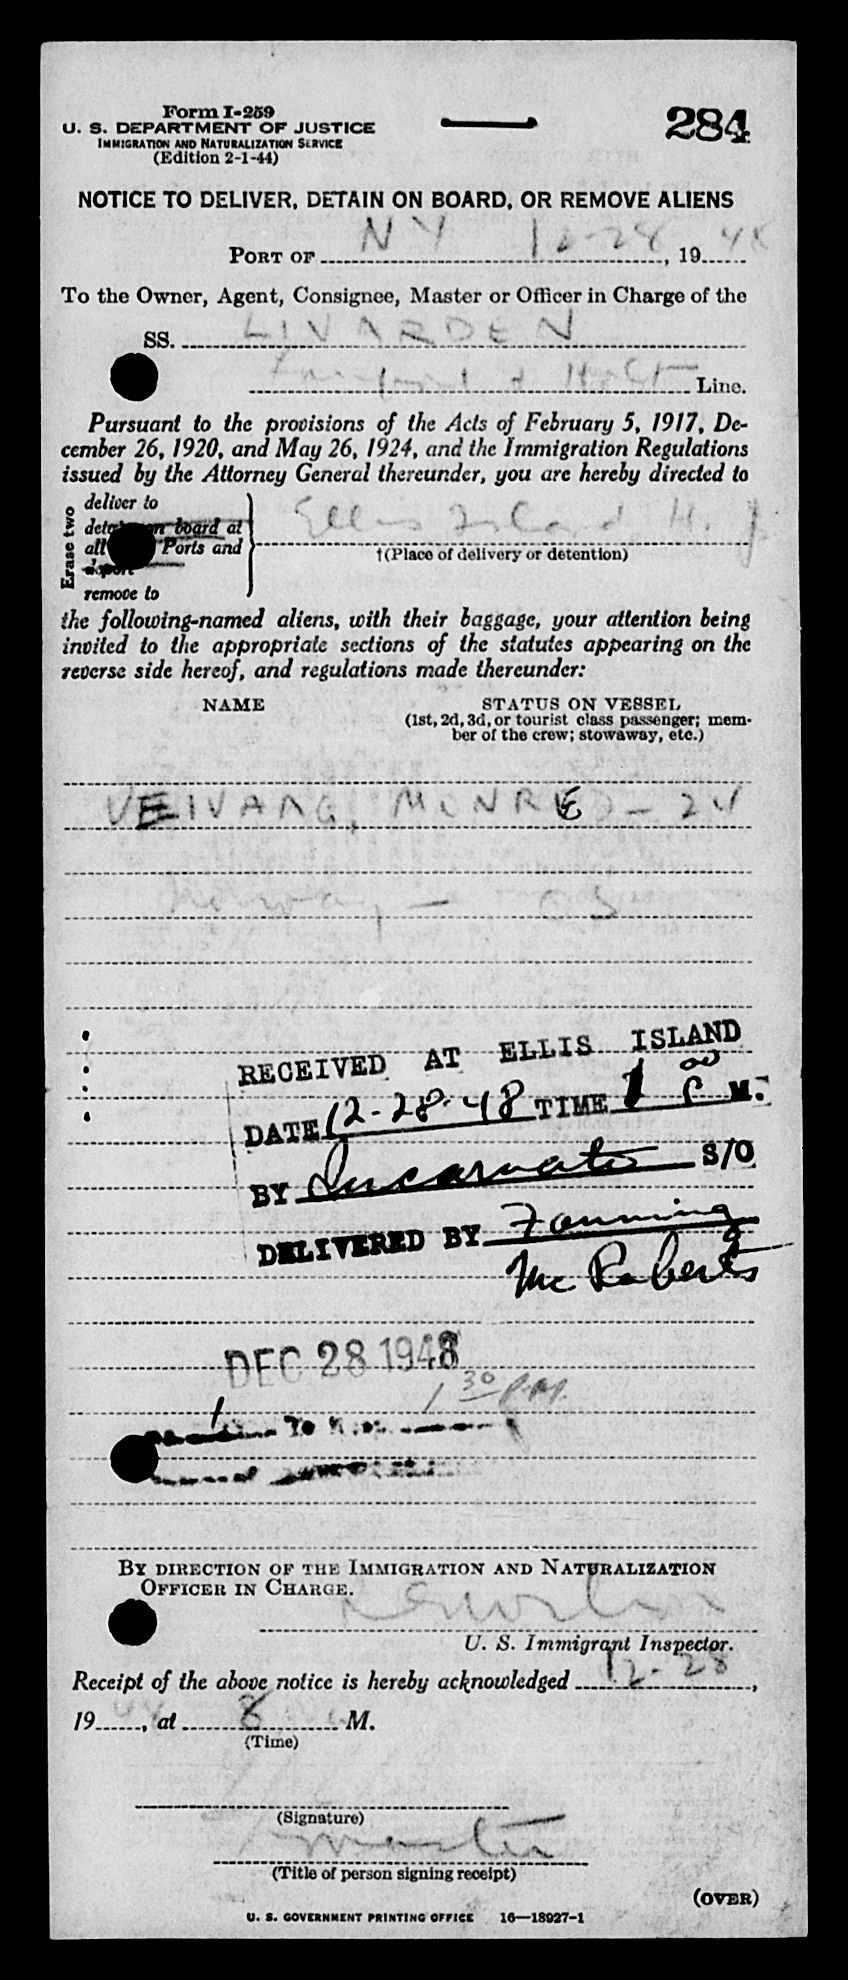 Form I-259
U. S. DEPARTMENT OF JUSTICE
IMMIGRATION AND NATURALIZATION SERVICE
(Edition 2-1-44)
284
NOTICE TO DELIVER, DETAIN ON BOARD, OR REMOVE ALIENS
PORT OF NY 12-28, 19 48
To the Owner, Agent, Consignee, Master or Officer in Charge of the
SS. LIVARDEN
Line.
Pursuant to the provisions of the Acts of February 5, 1917, De-
cember 26, 1920, and May 26, 1924, and the Immigration Regulations
issued by the Attorney General thereunder, you are hereby directed to
Erase two
deliver to
detain on board at
all Ports and
deport
remove to
Ellis Island, H.
†(Place of delivery or detention)
the following-named aliens, with their baggage, your attention being
invited to the appropriate sections of the statutes appearing on the
reverse side hereof, and regulations made thereunder:
NAME
STATUS ON VESSEL
(1st, 2d, 3d, or tourist class passenger; mem-
ber of the crew; stowaway, etc.)
VEIVANG, MONRED - 24
Norway - OS
RECEIVED AT ELLIS ISLAND
DATE 12-28-48 TIME 1 00 P M.
BY Incarnato S/O
DELIVERED BY Fanning
McRoberts
DEC 28 1948
1 30 P.M.
BY DIRECTION OF THE IMMIGRATION AND NATURALIZATION
OFFICER IN CHARGE.
U. S. Immigrant Inspector.
Receipt of the above notice is hereby acknowledged 12-28,
19 48, at 8 M.
(Time)
(Signature)
master
(Title of person signing receipt)
(OVER)
U. S. GOVERNMENT PRINTING OFFICE 16—18927-1